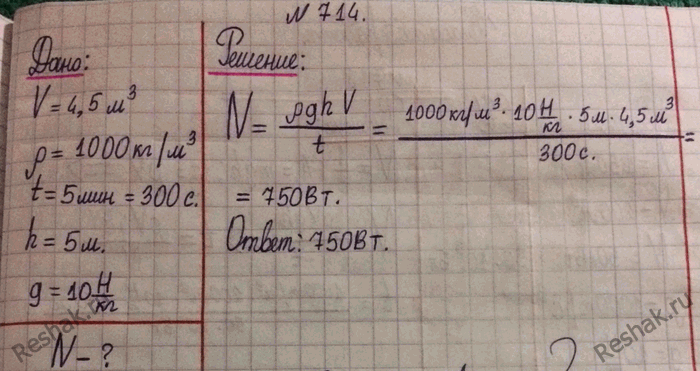 N 714.
Дано:
V = 4,5 м³
ρ = 1000 кг/м³
t = 5мин = 300 с.
h = 5 м.
g = 10 Н/кг
N – ?
Решение:
N = ρghV / t = 1000 кг/м³ · 10 Н/кг · 5 м · 4,5 м³ / 300 с. =
= 750 Вт.
Ответ: 750 Вт.
Reshak.ru
Reshak.ru